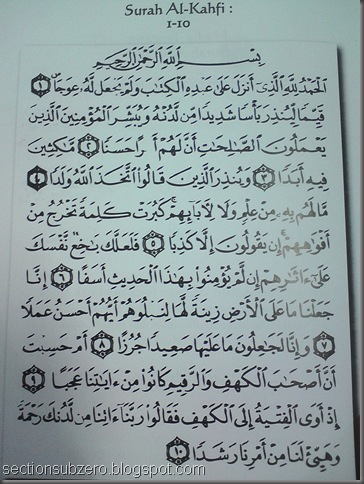 Surah Al-Kahfi :
1-10
بِسْمِ اللَّهِ الرَّحْمَٰنِ الرَّحِيمِ
الْحَمْدُ لِلَّهِ الَّذِي أَنزَلَ عَلَىٰ عَبْدِهِ الْكِتَابَ وَلَمْ يَجْعَل لَّهُ عِوَجًا ۜ ١
قَيِّمًا لِّيُنذِرَ بَأْسًا شَدِيدًا مِّن لَّدُنْهُ وَيُبَشِّرَ الْمُؤْمِنِينَ الَّذِينَ
يَعْمَلُونَ الصَّالِحَاتِ أَنَّ لَهُمْ أَجْرًا حَسَنًا ٢ مَّاكِثِينَ
فِيهِ أَبَدًا ٣ وَيُنذِرَ الَّذِينَ قَالُوا اتَّخَذَ اللَّهُ وَلَدًا ٤
مَّا لَهُم بِهِ مِنْ عِلْمٍ وَلَا لِآبَائِهِمْ ۚ كَبُرَتْ كَلِمَةً تَخْرُجُ مِنْ
أَفْوَاهِهِمْ ۚ إِن يَقُولُونَ إِلَّا كَذِبًا ٥ فَلَعَلَّكَ بَاخِعٌ نَّفْسَكَ
عَلَىٰ آثَارِهِمْ إِن لَّمْ يُؤْمِنُوا بِهَٰذَا الْحَدِيثِ أَسَفًا ٦ إِنَّا
جَعَلْنَا مَا عَلَى الْأَرْضِ زِينَةً لَّهَا لِنَبْلُوَهُمْ أَيُّهُمْ أَحْسَنُ عَمَلًا
٧ وَإِنَّا لَجَاعِلُونَ مَا عَلَيْهَا صَعِيدًا جُرُزًا ٨ أَمْ حَسِبْتَ
أَنَّ أَصْحَابَ الْكَهْفِ وَالرَّقِيمِ كَانُوا مِنْ آيَاتِنَا عَجَبًا ٩
إِذْ أَوَى الْفِتْيَةُ إِلَى الْكَهْفِ فَقَالُوا رَبَّنَا آتِنَا مِن لَّدُنكَ رَحْمَةً
وَهَيِّئْ لَنَا مِنْ أَمْرِنَا رَشَدًا ١٠
sectionsubzero.blogspot.com